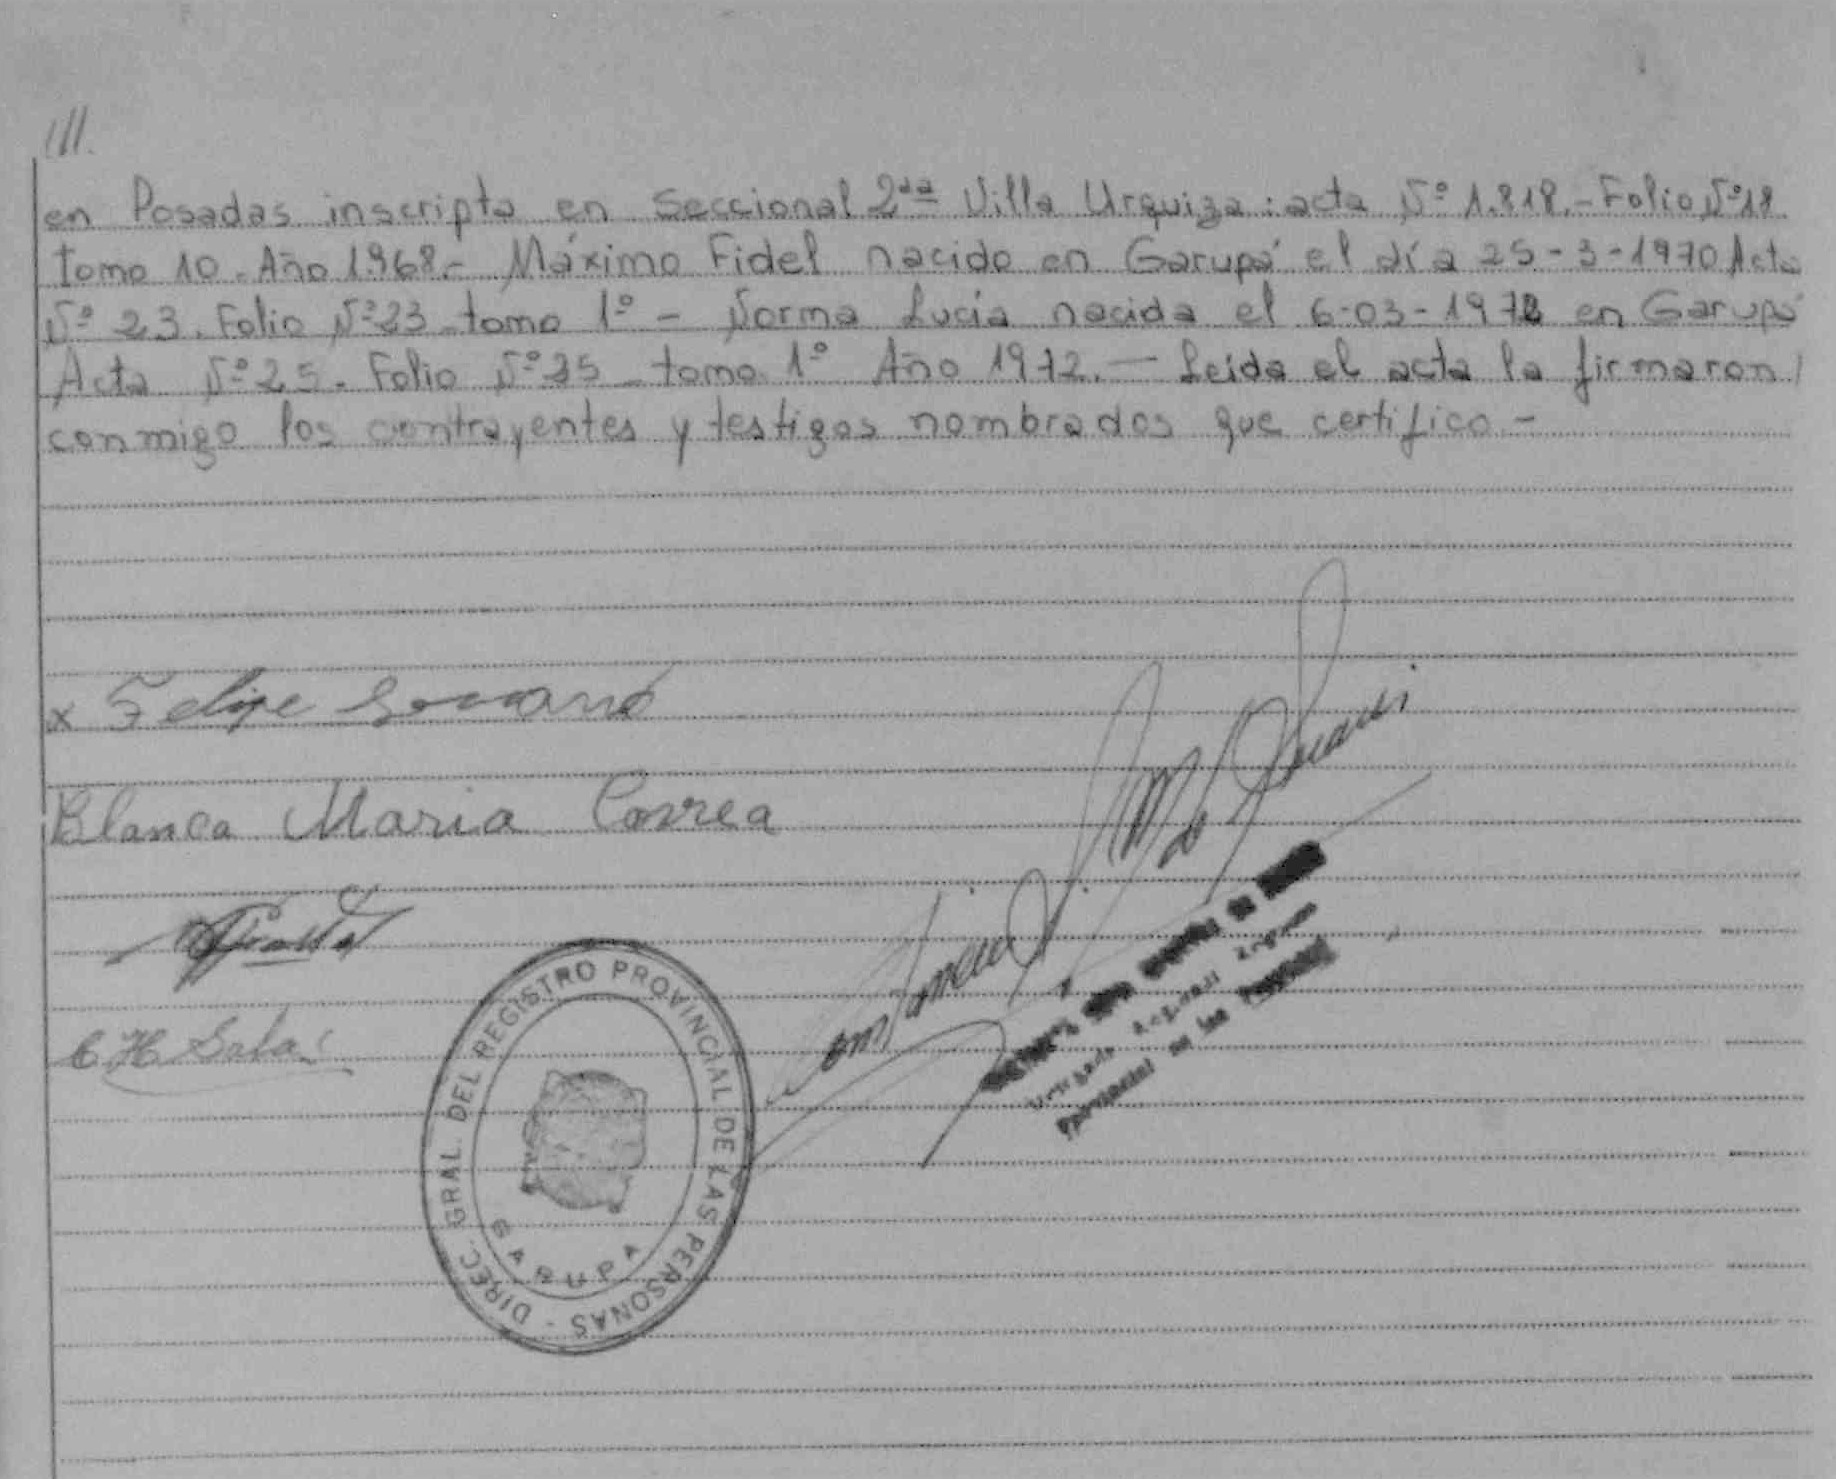 ///.
en Posadas inscripta en Seccional 2da Villa Urquiza: acta Nº 1.818.- Folio Nº 18
tomo 10. Año 1968.- Máximo Fidel nacido en Garupá el día 25-3-1970 Acta
Nº 23. Folio Nº 23 tomo 1º - Norma Lucía nacida el 6-03-1972 en Garupá
Acta Nº 25. Folio Nº 25 tomo 1º Año 1972.— Leída el acta la firmaron /
conmigo los contrayentes y testigos nombrados que certifico -
x Felipe
Blanca Maria Correa
C H
DIREC. GRAL. DEL REGISTRO PROVINCIAL DE LAS PERSONAS -
GARUPA
Provincial de las